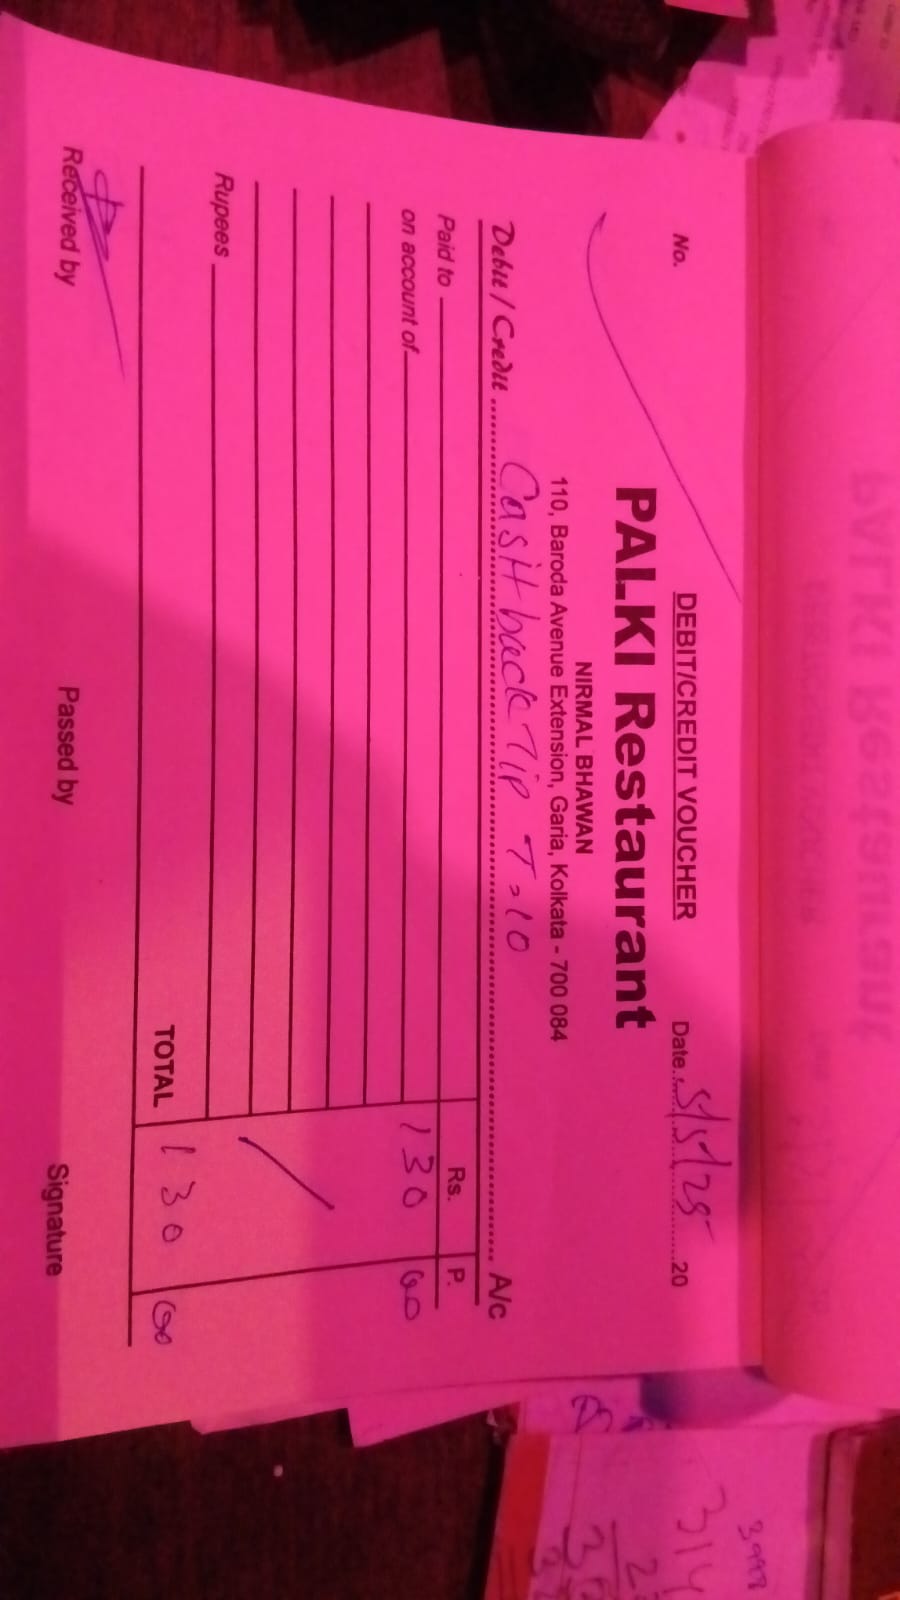 DEBIT/CREDIT VOUCHER
No. Date 5/5/25 20
PALKI Restaurant
NIRMAL BHAWAN
110, Baroda Avenue Extension, Garia, Kolkata - 700 084
Debit / Credit Cash back Tip T-10 A/c
Paid to Rs. P.
on account of 130 00
Rupees
TOTAL 130 00
Received by Passed by Signature
3998
314